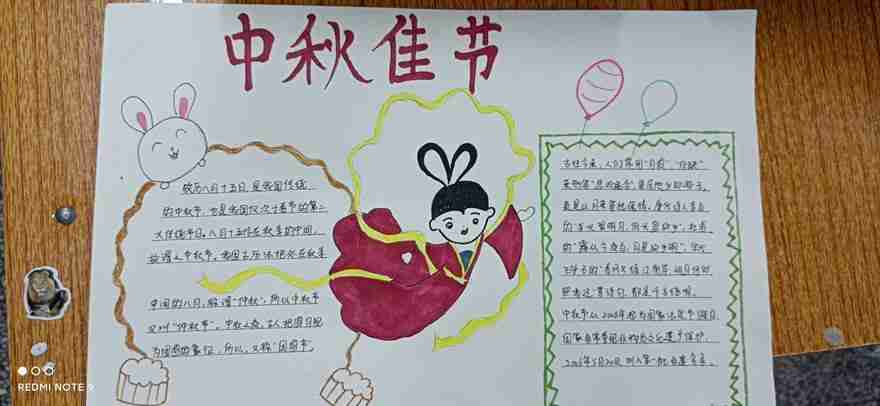 中秋佳节
农历八月十五日,是我国传统
的中秋节,也是我国仅次于春节的第二
大传统节日。八月十五恰在秋季的中间,
故谓之中秋节。我国古历法把处在秋季
中间的八月,称谓"仲秋",所以中秋节
又叫"仲秋节"。中秋之夜,古人把圆月视
为团圆的象征,所以,又称"团圆节"。
古往今来,人们常用"月圆"、
来形容"悲欢离合",客居他乡的游子,
更是以月来寄托深情。唐代诗人李白
的"举头望明月,低头思故乡",杜甫
的"露从今夜白,月是故乡明",宋代
王安石的"春风又绿江南岸,明月何时
照我还"等诗句,都是千古绝唱。
中秋节从2008年起为国家法定节假日。
国家非常重视非物质文化遗产保护,
2006年5月20日,列入第一批
REDMI NOTE 9